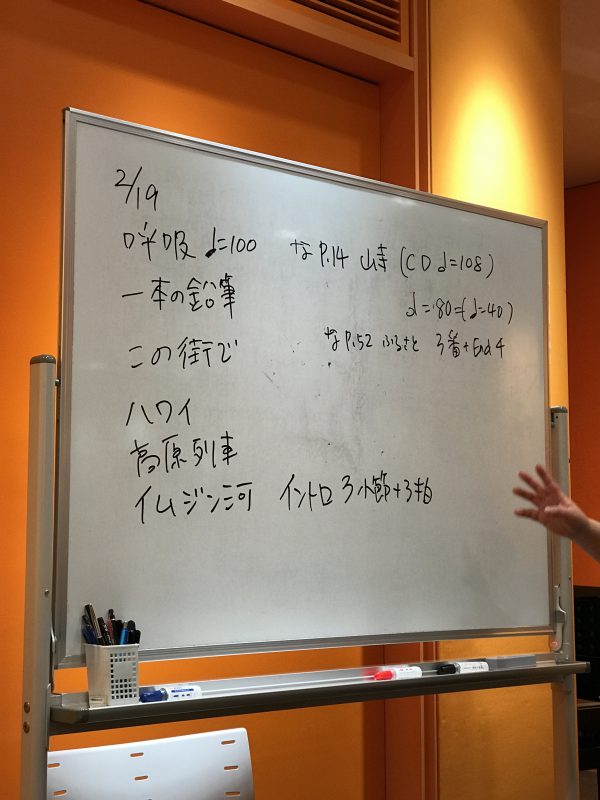 2/19
呼吸 ♩=100
一本の鉛筆
この街で
ハワイ
高原列車
イムジン河 イントロ 3小節+3拍
な P.14 山寺 (CD ♩=108)
♩=80=(𝅗𝅥=40)
な P.52 ふるさと 3番+End 4